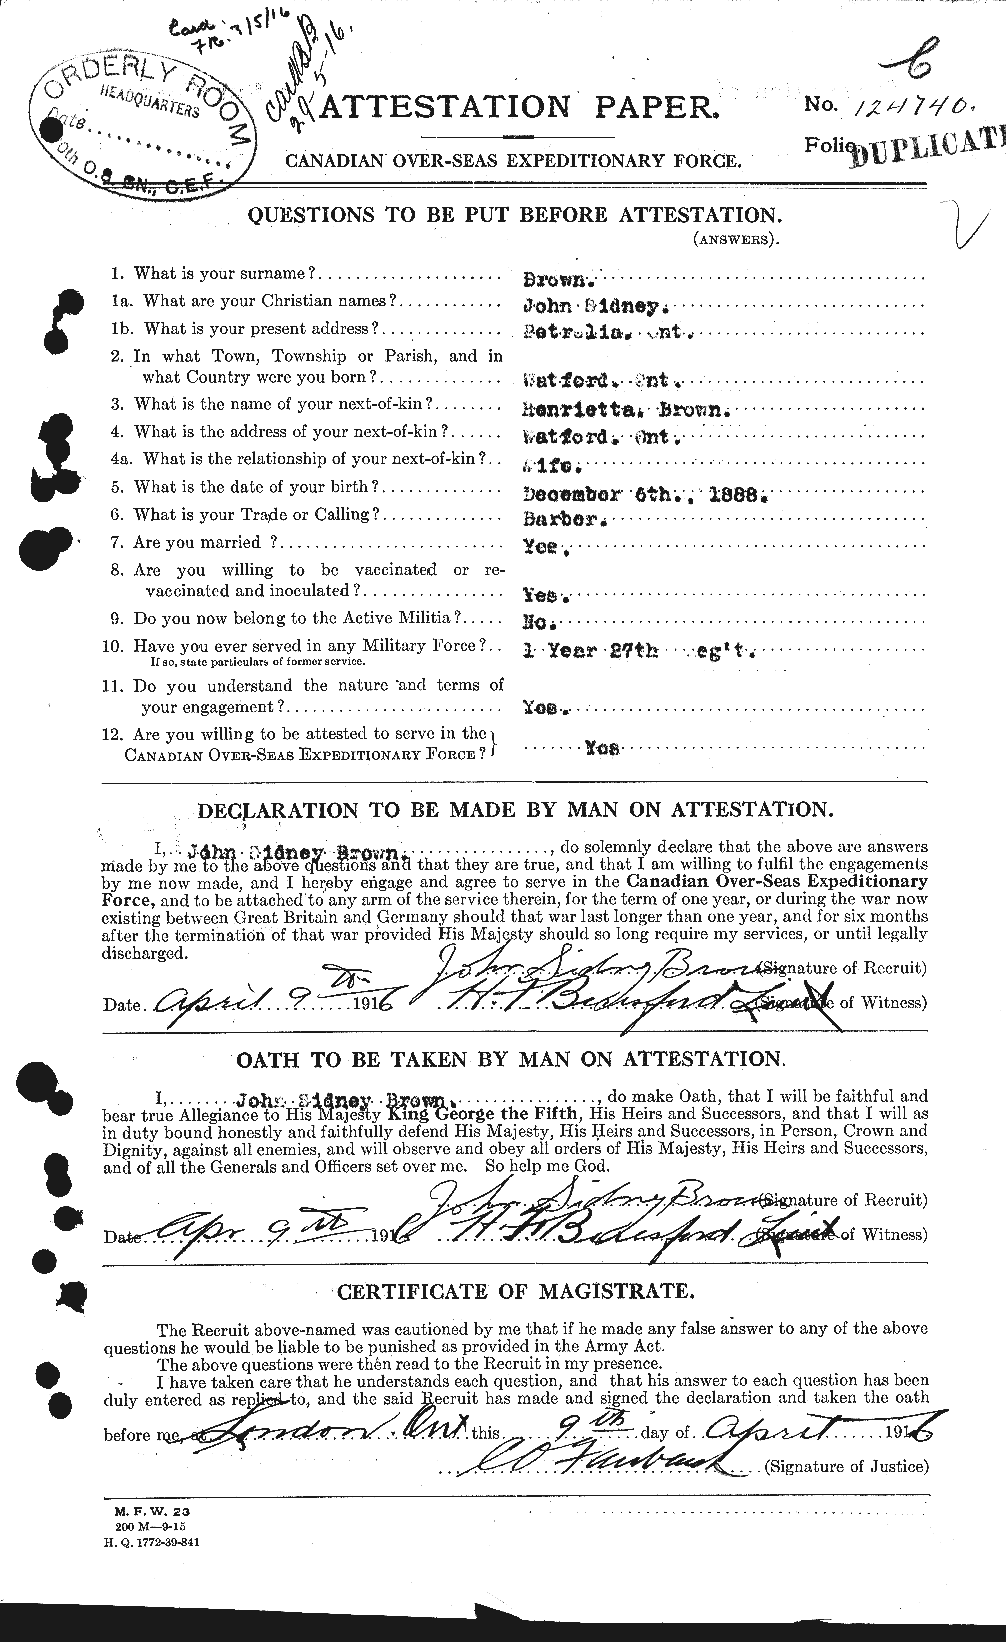 Card
3/5/16
29-5-16.
ORDERLY ROOM
HEADQUARTERS
Date
O.S. BN., C.E.F.
ATTESTATION PAPER.
No. 124740.
Folio
DUPLICATE
CANADIAN OVER-SEAS EXPEDITIONARY FORCE.
QUESTIONS TO BE PUT BEFORE ATTESTATION.
(ANSWERS).
1. What is your surname? Brown.
1a. What are your Christian names? John Sidney.
1b. What is your present address? Petrolia. Ont.
2. In what Town, Township or Parish, and in
what Country were you born? Watford. Ont.
3. What is the name of your next-of-kin? Henrietta. Brown.
4. What is the address of your next-of-kin? Watford. Ont.
4a. What is the relationship of your next-of-kin? Wife.
5. What is the date of your birth? December 6th., 1888.
6. What is your Trade or Calling? Barber.
7. Are you married ? Yes.
8. Are you willing to be vaccinated or re-
vaccinated and inoculated? Yes.
9. Do you now belong to the Active Militia? No.
10. Have you ever served in any Military Force? 1 Year 27th Reg't.
If so, state particulars of former service.
11. Do you understand the nature and terms of
your engagement? Yes.
12. Are you willing to be attested to serve in the
CANADIAN OVER-SEAS EXPEDITIONARY FORCE? Yes
DECLARATION TO BE MADE BY MAN ON ATTESTATION.
I, John Sidney Brown. , do solemnly declare that the above are answers
made by me to the above questions and that they are true, and that I am willing to fulfil the engagements
by me now made, and I hereby engage and agree to serve in the Canadian Over-Seas Expeditionary
Force, and to be attached to any arm of the service therein, for the term of one year, or during the war now
existing between Great Britain and Germany should that war last longer than one year, and for six months
after the termination of that war provided His Majesty should so long require my services, or until legally
discharged.
John Sidney Brown (Signature of Recruit)
Date. April 9th 1916 H. F. Beresford Lieut (Signature of Witness)
OATH TO BE TAKEN BY MAN ON ATTESTATION.
I, John Sidney Brown. , do make Oath, that I will be faithful and
bear true Allegiance to His Majesty King George the Fifth, His Heirs and Successors, and that I will as
in duty bound honestly and faithfully defend His Majesty, His Heirs and Successors, in Person, Crown and
Dignity, against all enemies, and will observe and obey all orders of His Majesty, His Heirs and Successors,
and of all the Generals and Officers set over me. So help me God.
John Sidney Brown (Signature of Recruit)
Date Apr 9th 1916 H. F. Beresford Lieut (Signature of Witness)
CERTIFICATE OF MAGISTRATE.
The Recruit above-named was cautioned by me that if he made any false answer to any of the above
questions he would be liable to be punished as provided in the Army Act.
The above questions were then read to the Recruit in my presence.
I have taken care that he understands each question, and that his answer to each question has been
duly entered as replied to, and the said Recruit has made and signed the declaration and taken the oath
before me, at London Ont this 9th day of April 1916
C O Fairbank (Signature of Justice)
M. F. W. 23
200 M—9-15
H. Q. 1772-39-841